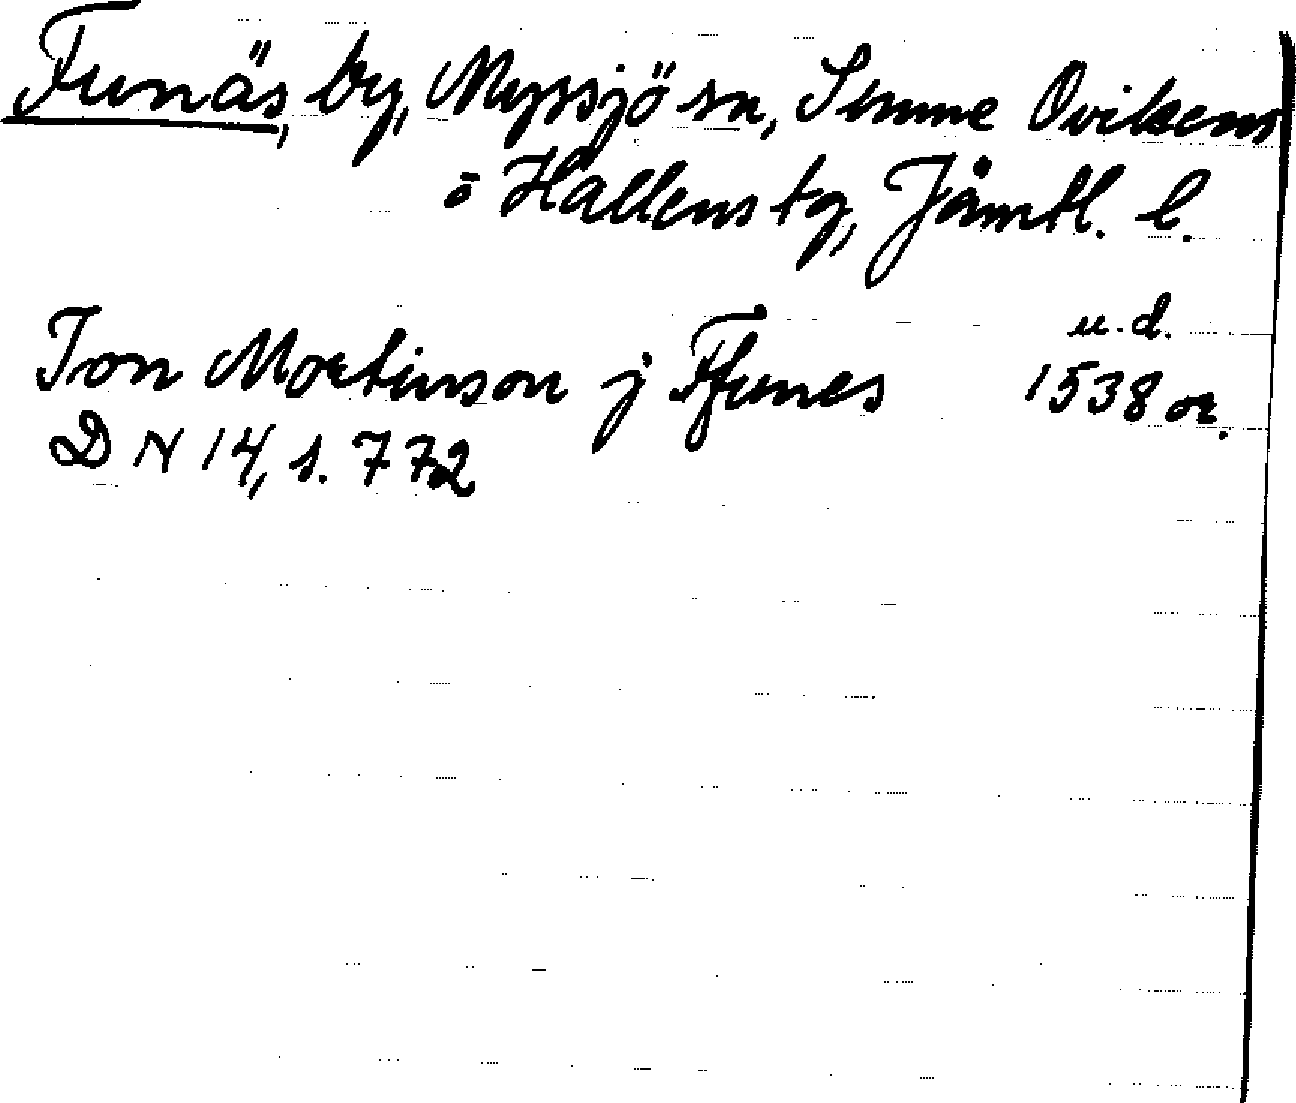 Funäs, by, Myssjö sn, Sunne Ovikens
o Hallens tg, Jämtl. l.
u. d.
Jon Mortinson j Ffunes 1538 or.
D N 14, s. 772